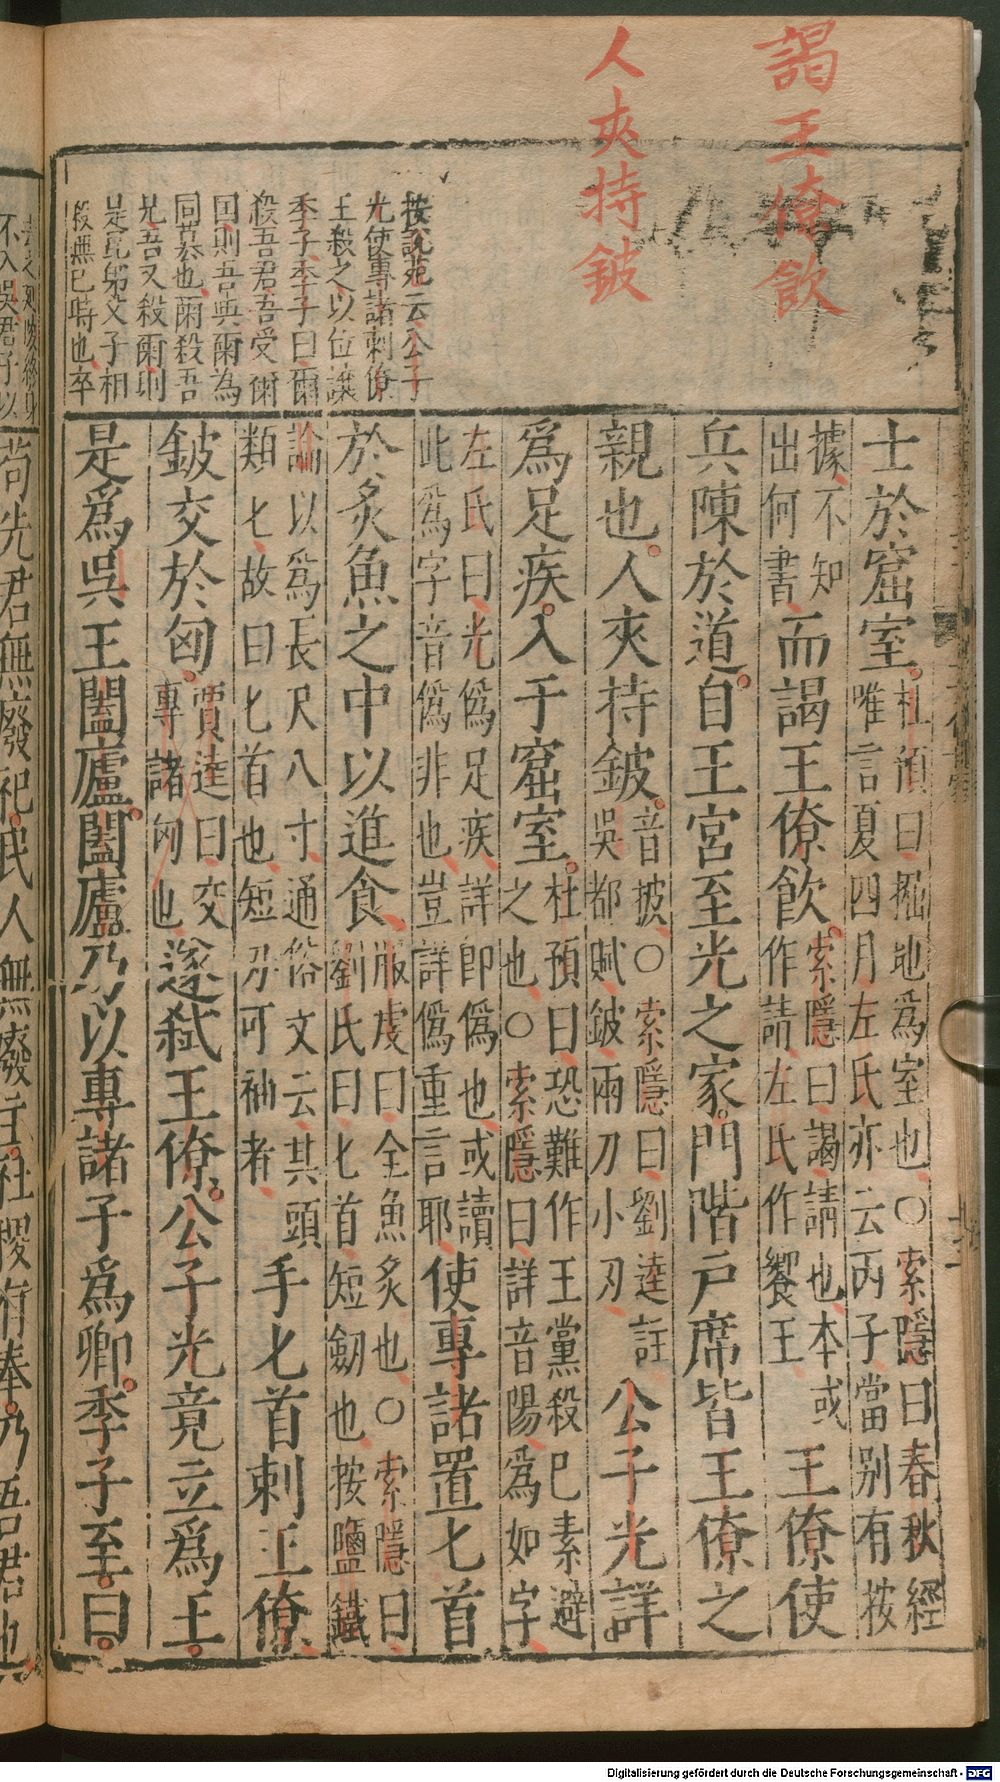 謁王僚飲
人夾持鈹
按說苑云公子
光使專諸刺僚
王殺之以位讓
季子季子曰爾
殺吾君吾受爾
國則吾與爾為
同莫也爾殺吾
兄吾又殺爾則
是昆弟父子相
殺無已時也卒
士於窟室杜預曰掘地爲室也○索隱曰春秋經
唯言夏四月左氏亦云丙子當別有按
據不知
出何書而謁王僚飲索隱曰謁請也本或
作請左氏作饗王王僚使
兵陳於道自王宮至光之家門階戶席皆王僚之
親也人夾持鈹音披○索隱曰劉逵註
吳都賦鈹兩刀小刀公子光詳
爲足疾入于窟室杜預曰恐難作王黨殺已素避
之也○索隱曰詳音陽爲如字
左氏曰光僞足疾詳即僞也或讀
此爲字音僞非也豈詳僞重言耶使專諸置匕首
於炙魚之中以進食服虔曰全魚炙也○索隱曰
劉氏曰匕首短劒也按鹽鐵
論以爲長尺八寸通俗文云其頭
類匕故曰匕首也短刃可袖者手匕首刺王僚
鈹交於匈賈逵曰交
專諸匈也遂弒王僚公子光竟立爲王
是爲吳王闔廬闔廬乃以專諸子爲卿季子至曰
去之延陵終身
不入吳君子以
苟先君無廢祀民人無廢主社稷有奉乃吾君也
Digitalisierung gefördert durch die Deutsche Forschungsgemeinschaft - DFG